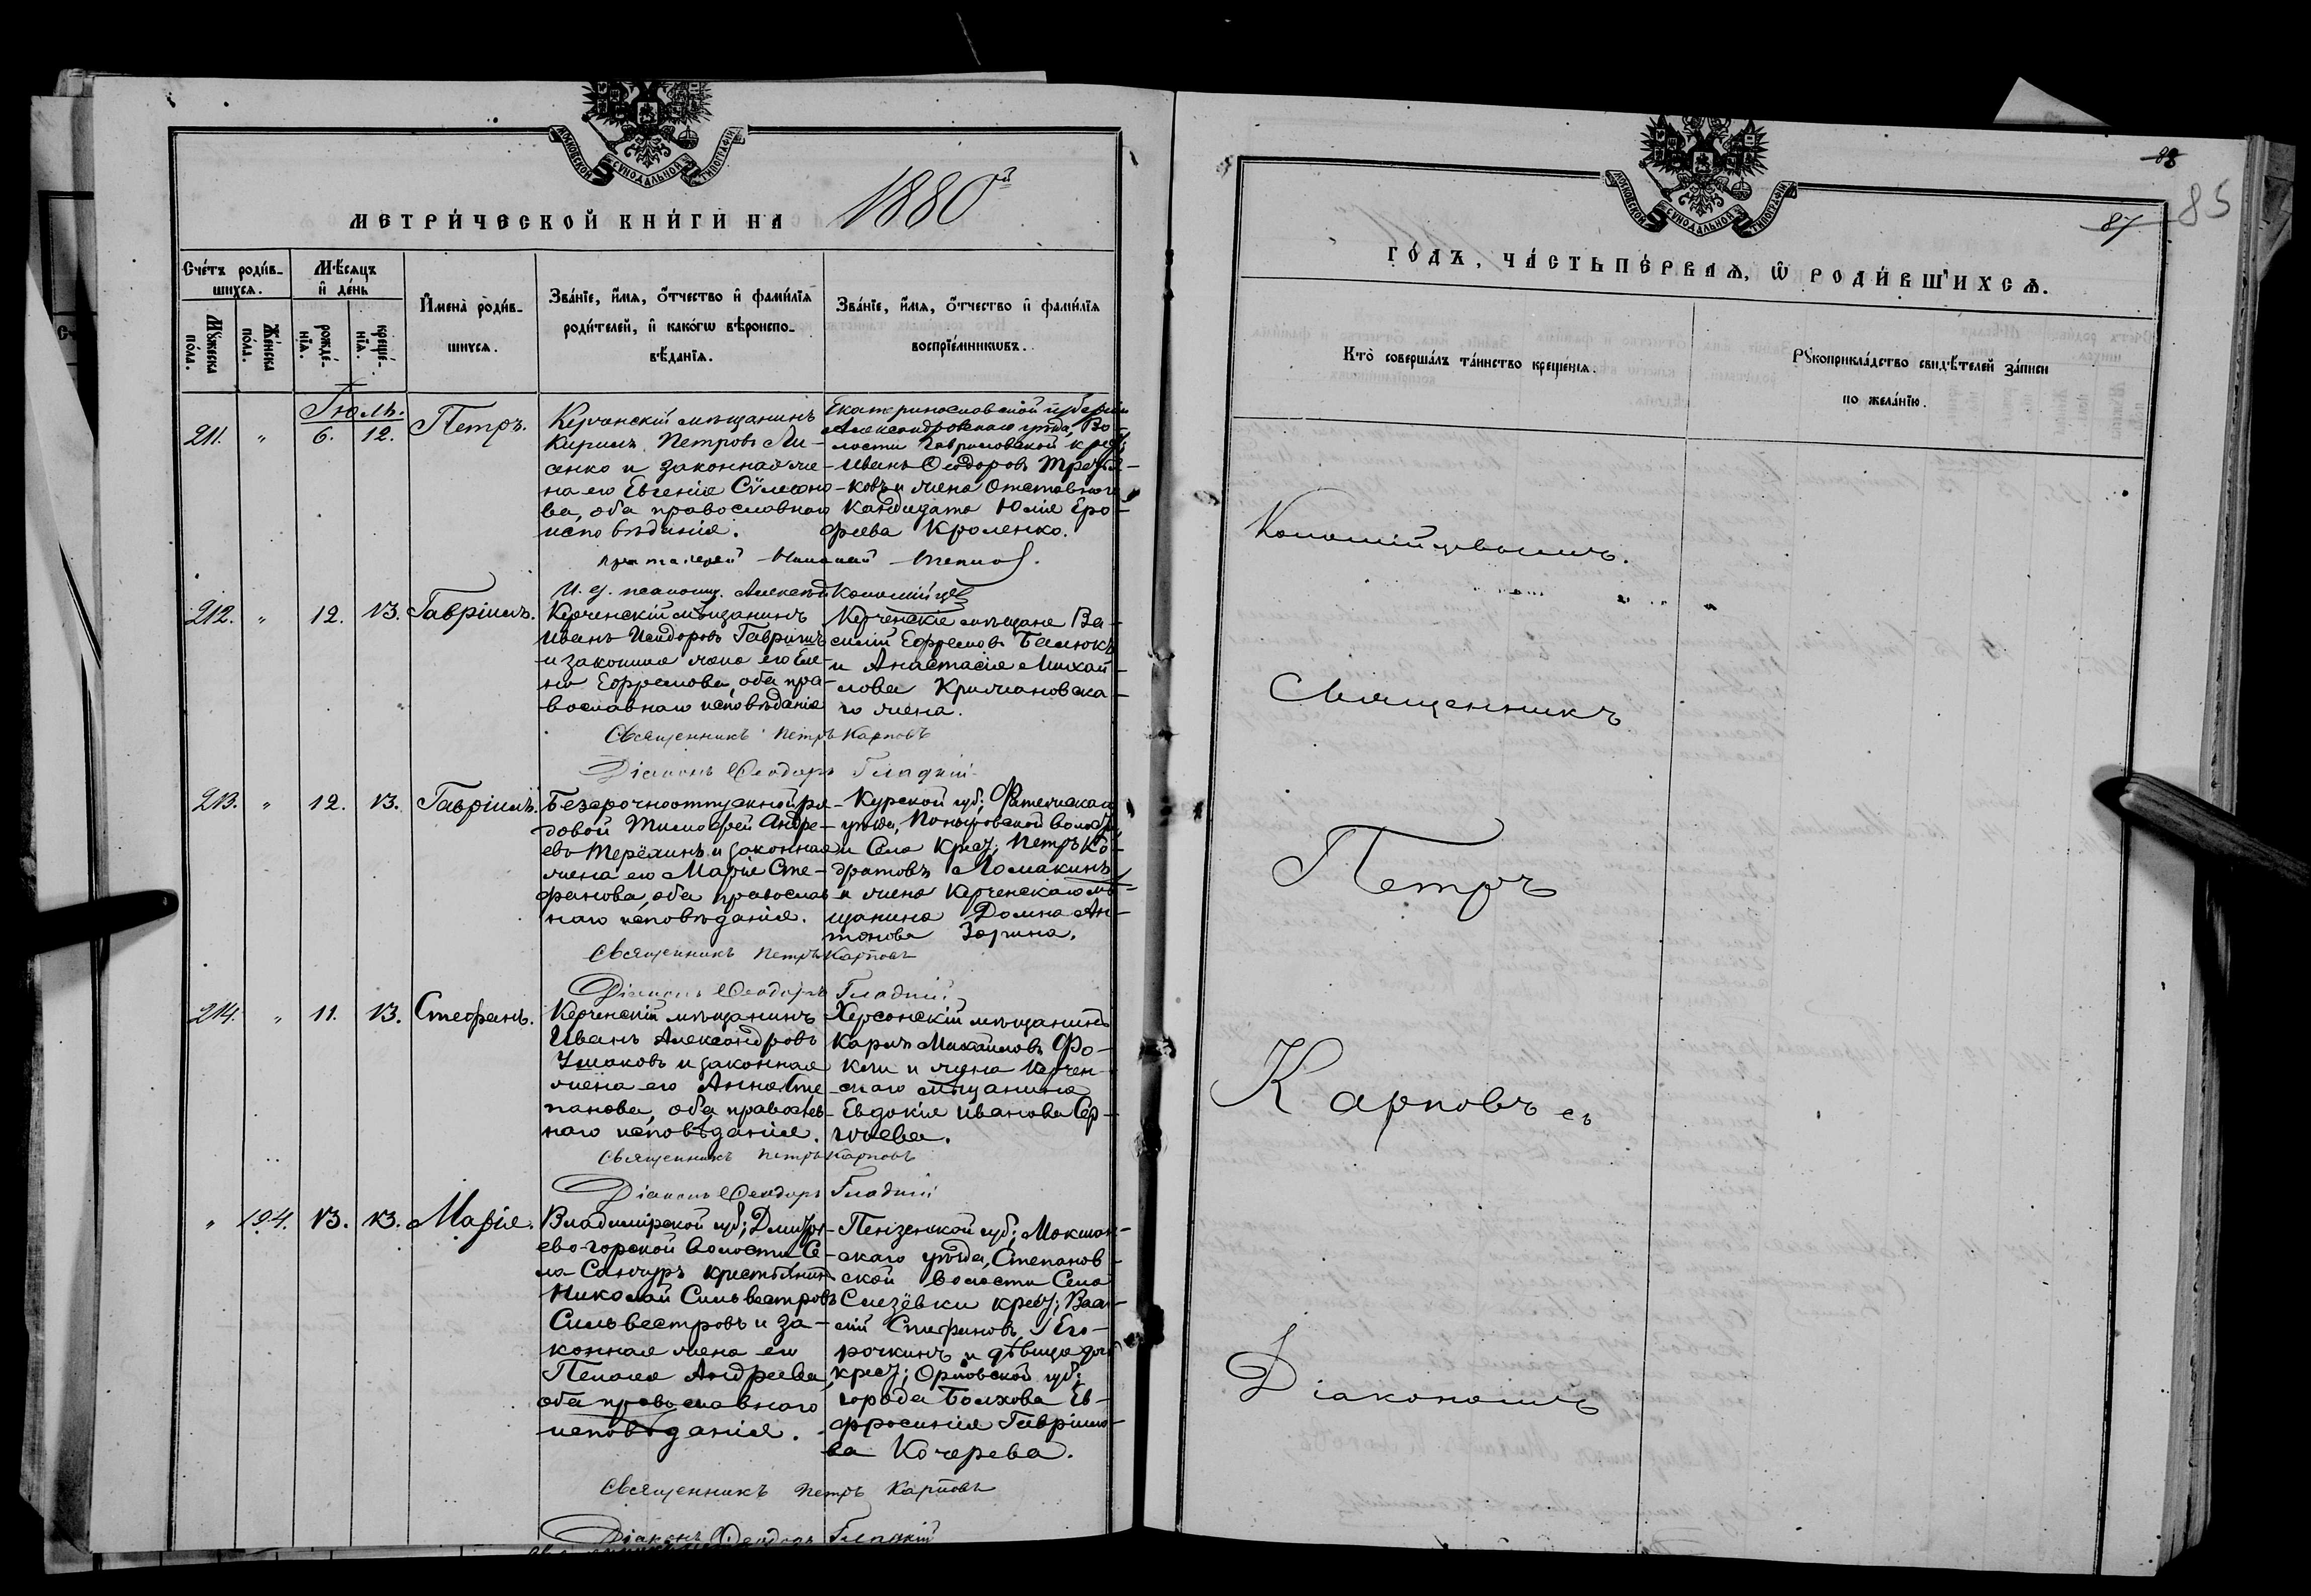 МОСКОВСКОЙ СѴНОДАЛЬНОЙ ТИПОГРАФІИ
МЕТРИ́ЧЕСКОЙ КНИ́ГИ НА 1880й
Сче́тъ роди́вшихсѧ.
Мꙋ́жеска по́ла.
Же́нска по́ла.
Мѣ́сѧцъ и҆ де́нь
рожде́нїѧ.
креще́нїѧ.
И҆мена̀ роди́вшихсѧ.
Зва́нїе, и҆́мѧ, ѻ҆́тчество и҆ фамı́лїѧ
роди́телей, и҆ како́гѡ вѣроиспо-
вѣ́данїѧ.
Зва́нїе, и҆́мѧ, ѻ҆́тчество и҆ фамı́лїѧ
воспрїе́мникѡвъ.
Іюль.
211. " 6. 12. Петръ.
Керчанскій мѣщанинъ
Кирилъ Петровъ Ли-
сенко и законная же-
на его Евгенія Сѵмеоно-
ва, оба православнаго
исповѣданія.
Екатеринославской губерніи
Александровскаго уѣзда, Во-
лости Гавриловской крес;
Иванъ Ѳеодоровъ Третья-
ковъ и жена Отставнаго
Кандидата Юлія Еро-
феева Кроленко.
Протоіерей Николай
И. д. псаломщ. Алексѣй Коломійцев
212. " 12. 13. Гавріилъ.
Керченскій мѣщанинъ
Иванъ Исидоровъ Гавришъ
и законная жена его Еле-
на Ефремова, оба пра-
вославнаго исповѣданія
Керченскіе мѣщане Ва-
силій Ефремовъ Балюкъ
и Анастасія Михай-
лова Крижановска-
го жена.
Священникъ Петръ Карповъ
Діаконъ Ѳеодоръ Гладкій
213. " 12. 13. Гавріилъ.
Безсрочноотпускной ря-
довой Тимофей Андре-
евъ Терёхинъ и законная
жена его Марія Сте-
фанова, оба православ-
наго исповѣданія.
Курской губ; Фатежскаго
уѣзда, Поныровской волости,
и Села Крес; Петръ Ко-
дратовъ Ломакинъ
и жена Керченскаго мѣ-
щанина Домна Ан-
тонова Зорина.
Священникъ Петръ Карповъ
Діаконъ Ѳеодоръ Гладкій
214. " 11. 13. Стефанъ.
Керченскій мѣщанинъ
Иванъ Александровъ
Ушаковъ и законная
жена его Анна Сте-
панова, оба православ-
наго исповѣданія.
Херсонскій мѣщанинъ
Карлъ Михайловъ Фо-
кти и жена Керчен-
скаго мѣщанина
Евдокія Иванова Сер-
гѣева.
Священникъ Петръ Карповъ
Діаконъ Ѳеодоръ Гладкій
" 194. 13. 13. Марія.
Владимірской губ; Дмитрі-
ево-горской волости Се-
ла Санчуръ крестьянинъ
Николай Сильвестровъ
Сильвестровъ и за-
конная жена его
Пелагя Андреева,
оба православнаго
исповѣданія.
Пензенской губ; Мокшан-
скаго уѣзда, Степанов-
ской волости Села
крес; Васи-
лій Стефановъ Его-
рочкинъ и дѣвица дочь
крес; Орловской губ;
города Болхова Ев-
фросинія Гаврило-
ва Кочерева.
Священникъ Петръ Карповъ
Діаконъ Ѳеодоръ Гладкій
МОСКОВСКОЙ СѴНОДАЛЬНОЙ ТИПОГРАФІИ
88
87
85
ГО́ДЪ, ЧА́СТЬ ПЕ́РВАѦ, Ѡ҆ РОДИ́ВШИХСѦ.
Кто̀ соверша́лъ та́инство креще́нїѧ.
Рꙋкоприкла́дство свидѣ́телей за́писи
по жела́нїю.
Коломійцевымъ.
Священникъ
Петръ
Карповъ съ
Діакономъ